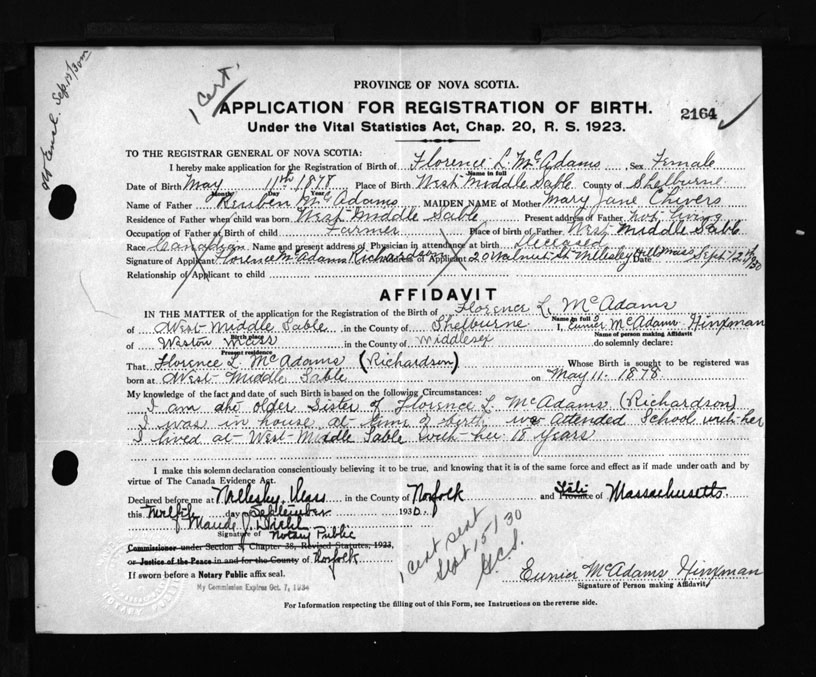 1 Cert.
PROVINCE OF NOVA SCOTIA.
APPLICATION FOR REGISTRATION OF BIRTH.
2164
Under the Vital Statistics Act, Chap. 20, R. S. 1923.
TO THE REGISTRAR GENERAL OF NOVA SCOTIA:
I hereby make application for the Registration of Birth of Florence L. McAdams Sex Female
Name in full
Date of Birth May 11th 1878 Place of Birth West Middle Sable County of Shelburne
Month Day Year
Name of Father Reuben McAdams MAIDEN NAME of Mother Mary Jane Chivers
Residence of Father when child was born West Middle Sable Present address of Father not living
Occupation of Father at Birth of child Farmer Place of birth of Father West Middle Sable
Race Canadian Name and present address of Physician in attendance at birth Deceased
Signature of Applicant Florence McAdams Richardson Address of Applicant 20 Walnut St Wellesley Hills Mass Date Sept 12th 1930
Relationship of Applicant to child
AFFIDAVIT
IN THE MATTER of the application for the Registration of the Birth of Florence L. McAdams
Name in full
of West Middle Sable in the County of Shelburne I, Eunice McAdams Hinxman
Birth place
Name of person making Affidavit
of Weston Mass in the County of Middlesex do solemnly declare:
Present residence
That Florence L McAdams (Richardson) Whose Birth is sought to be registered was
born at West Middle Sable on May 11 - 1878.
My knowledge of the fact and date of such Birth is based on the following Circumstances:
I am the older Sister of Florence L. McAdams (Richardson)
I was in house at time of birth we attended School with her
I lived at West Middle Sable with her 18 years
I make this solemn declaration conscientiously believing it to be true, and knowing that it is of the same force and effect as if made under oath and by
virtue of The Canada Evidence Act.
Declared before me at Wellesley, Mass in the County of Norfolk and State Province of Massachusetts
this Twelfth day September 1930.
Maude J.
Signature of Notary Public
Commissioner under Section 3, Chapter 38, Revised Statutes, 1923,
or Justice of the Peace in and for the County of Norfolk
If sworn before a Notary Public affix seal.
My Commission Expires Oct. 7, 1934
1 cert sent
Sept 15/30
G.C.S.
Eunice McAdams Hinxman
Signature of Person making Affidavit
For Information respecting the filling out of this Form, see Instructions on the reverse side.